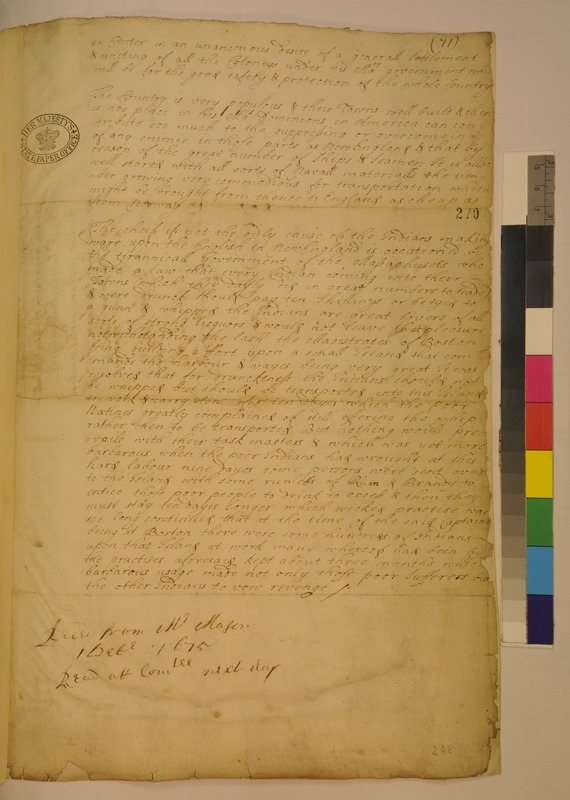 (71)
to Center in an unanimous desire of a general settlement
& uniting of all the Coloneys under his Ma.ts government
will be for the good safety & protection of the whole Country
The Country is very populous & their Towns well built & there
is noe place in his Ma.ts Dominions in America can con
tribute soe much to the suppressing or overcoming
of any enimie in those parts as NewEngland & that by
reason of the great number of Ships & Seamen It is also
well stored with all sorts of Navall materialls the tim
ber growing very commodious for transportation which
might be brought from thence to England as cheap as
from Norway
270
The cheif if not the only cause of the Indians making
warr upon the English in NewEngland is occationed by
the tyrannicall government of the Massachusets who
made a law that every Indian coming into their
Towns (which they dayly did in great numbers to trade)
& were drunck should pay ten shillings or be tyed to
a gunn & whipped the Indians are great lovers of all
sorts of strong liquors & would not leave that pleasure
notwithstanding the lash the Magistrates of Boston
being building a Fort upon a small Island that com
mands the harbour & wages being very great It was
resolved that for drunckeness the Indians should not
be whipped but should be transported into this Island
to work & carry ten dayes which the poor
Natives greatly complained of still desiring the whip
rather then to be transported But nothing would pre
vaile with their task masters & which was yet more
barbarous when the poor Indians had wrought at this
hard labour nine dayes some persons were sent over
to the Island with some runlets of Rum & Brandy to
entice those poor people to drink to excess & then they
must stay ten dayes longer which wicked practise was
soe long continued that at the time of the said Captains
being at Boston there were some hundreds of Indians
upon that Island at work many whereof had been by
the practises aforesaid kept about three months which
barbarous usage made not only those poor Sufferers but
the other Indians to vow revenge
Recd from Mr Mason
Decbr 1675
Read att Comtee next day
248
HER MAJESTY'S
STATE PAPER OFFICE